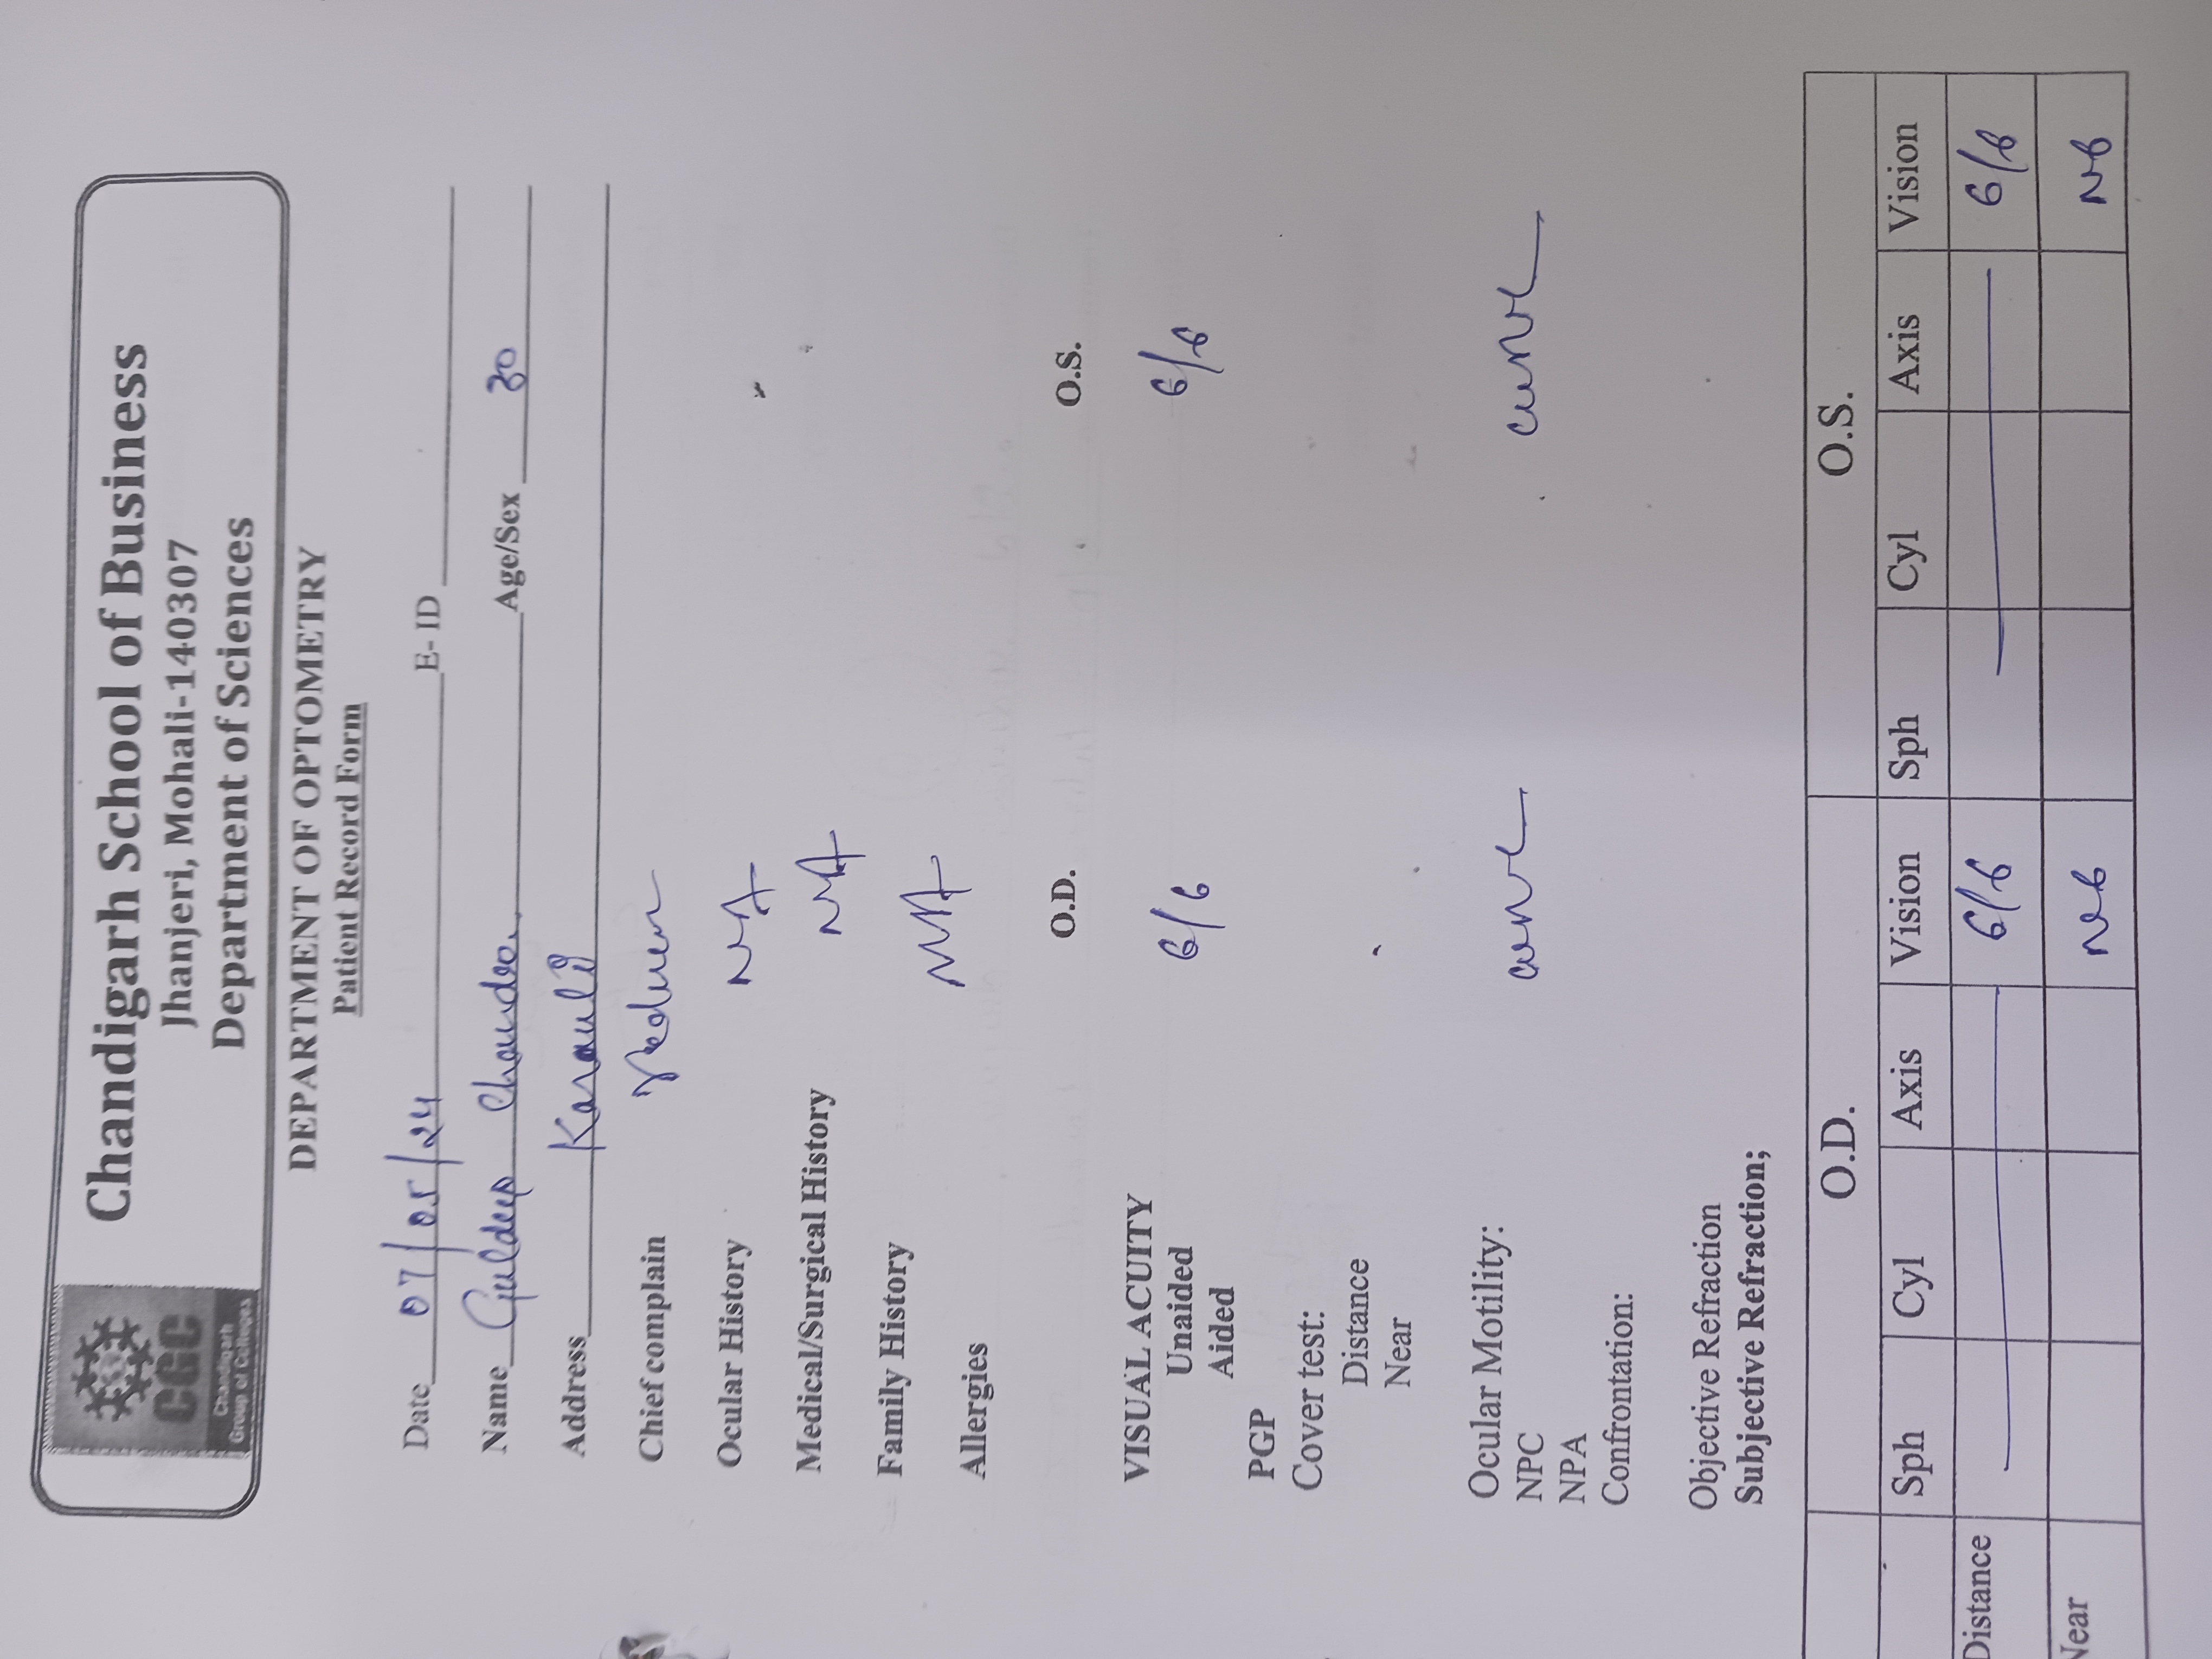 CGC
Chandigarh
Group of Colleges
Chandigarh School of Business
Jhanjeri, Mohali-140307
Department of Sciences
DEPARTMENT OF OPTOMETRY
Patient Record Form
Date 07/05/24 E- ID
Name Guldeep Chandra Age/Sex 30
Address Karauli
Chief complain
Ocular History NA
Medical/Surgical History NA
Family History NA
Allergies
O.D. O.S.
VISUAL ACUITY
Unaided 6/6 6/6
Aided
PGP
Cover test:
Distance
Near
Ocular Motility:
NPC
NPA
Confrontation:
Objective Refraction
Subjective Refraction;
O.D. O.S.
Sph Cyl Axis Vision Sph Cyl Axis Vision
Distance 6/6 6/6
Near N6 N6